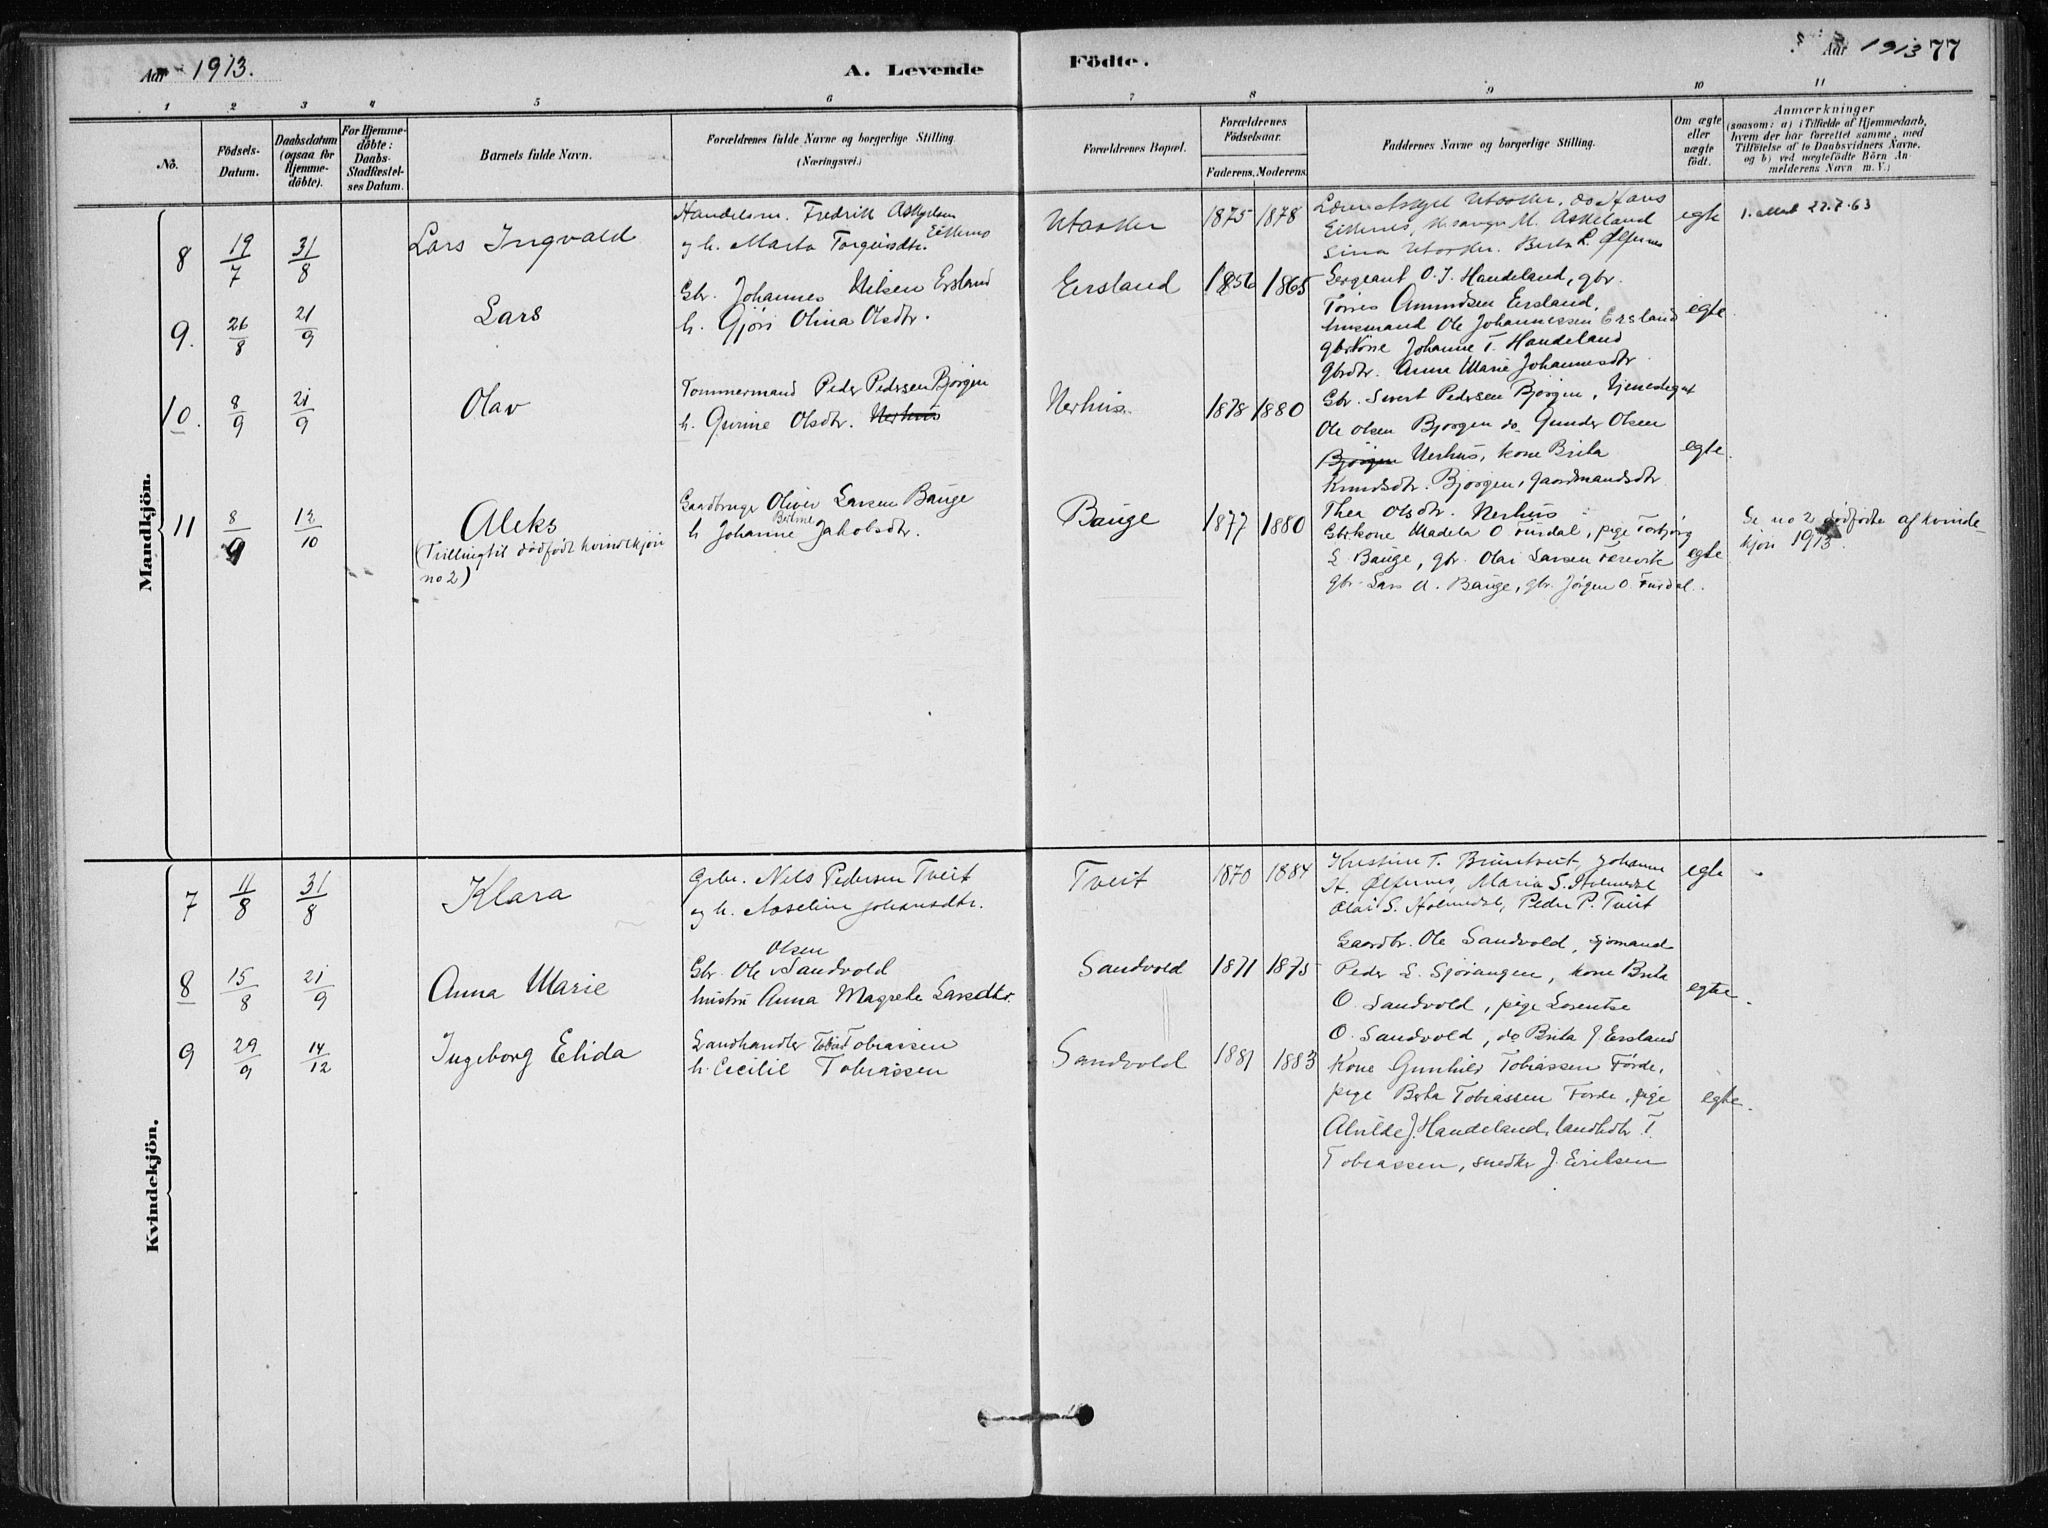 Aar 1913.
A. Levende
Födte.
Aar 1913 77
1 2 3 4 5 6 7 8 9 10 11
Nô.
Födsels-
Datum.
Daabsdatum
(ogsaa for
Hjemme-
döbte).
For Hjemme-
döbte:
Daabs-
Stadfæstel-
ses Datum.
Barnets fulde Navn.
Forældrenes fulde Navne og borgerlige Stilling
(Næringsvei.)
Forældrenes Bopæl.
Forældrenes
Födselsaar.
Faderens. Moderens.
Faddernes Navne og borgerlige Stilling.
Om ægte
eller
uægte
födt.
Anmærkninger
(saasom: a) i Tilfælde af Hjemmedaab,
hvem der har forrettet samme, med
Tilföielse af to Daabsvidners Navne,
og b) ved uægtefödte Börn An-
melderens Navn m. V.)
Mandkjön.
8 19/7 31/8
Lars Ingvald
Handelsm. Fredrik
Eitternes
og h. Marta
1875 1878
Hans
M. Askeland
Berta L. Ølfernes
egte
22.7.63
9. 26/8 21/9
Lars
Gbr. Johannes Nilsen Ersland
h. Gjöri Olina Olsdtr.
Eersland
1856 1865
Sergeant O. J. Handeland, gbr.
Törres Amundsen Eersland,
husmand Ole Johannessen Ersland
gbrkone Johanne T. Handeland
gbrdtr. Anna Marie Johannesdtr
egte.
10. 8/9 21/9
Olav
Tommermand Peder Pedersen Bjørgen
h. Gurine Olsdtr. Nerhus
Nerhus.
1878 1880
Gbr. Sivert Pedersen Bjørgen, tjenestegut
Ole Olsen Bjørgen do Gunder Olsen
Bjørgen Nerhus, kone Brita
Knudsdtr. Bjørgen, gaardmandsdtr
Thea Olsdtr. Nerhus
egte.
11 8/9 12/10
Aleks
(Trilling til dødfødt kvindekjøn
no 2)
Gaardbruger Oliver Larsen Bauge
h Johanne Jakobsdtr.
Bauge
1877 1880
Gbrkone Madela O Furdal, pige Torbjörg
L Bauge, gbr. Olai Larsen
gbr. Lars A. Bauge, gbr. Jørgen O. Furdal.
egte
Se no 2 dødfødte af kvinde-
kjøn 1913.
Kvindekjön.
7 11/8 31/8
Klara
Grbr. Nils Pedersen Tveit
og h. Johansdtr.
Tveit
1870 1884
Kristine T. Johanne
H. Ølfernes, Maria S. Holmedal
Olai S. Holmedal, Peder P. Tveit
egte
8 15/8 21/9
Anna Marie
Olsen
Gbr. Ole Sandvold
hustru Anna Magrete Larsdtr.
Sandvold
1871 1875
Gaardbr. Ole Sandvold, sjømand
Peder L. Sjøvangen, kone Brita
O. Sandvold, pige Lorentse
O. Sandvold, do Brita J Eersland
egte.
9 29/9 14/12
Ingeborg Elida
Landhandler Tobias Tobiassen
h. Cecilie Tobiassen
Sandvold
1881 1883
Kone Gunhild Tobiassen Førde,
pige Berta Tobiassen Førde, pige
Alvilde J. Handeland, landhdlr T.
Tobiassen, snedker J. Eriksen
egte.